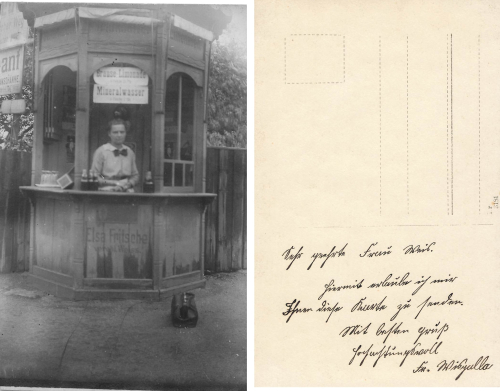 Brause Limonade
Mineralwasser
Elsa Fritsche
Sehr geehrte Frau Weis.
Hiermit erlaube ich mir
Ihnen diese Kaarte zu senden.
Mit besten gruß
Hochachtungsvoll
Fr.